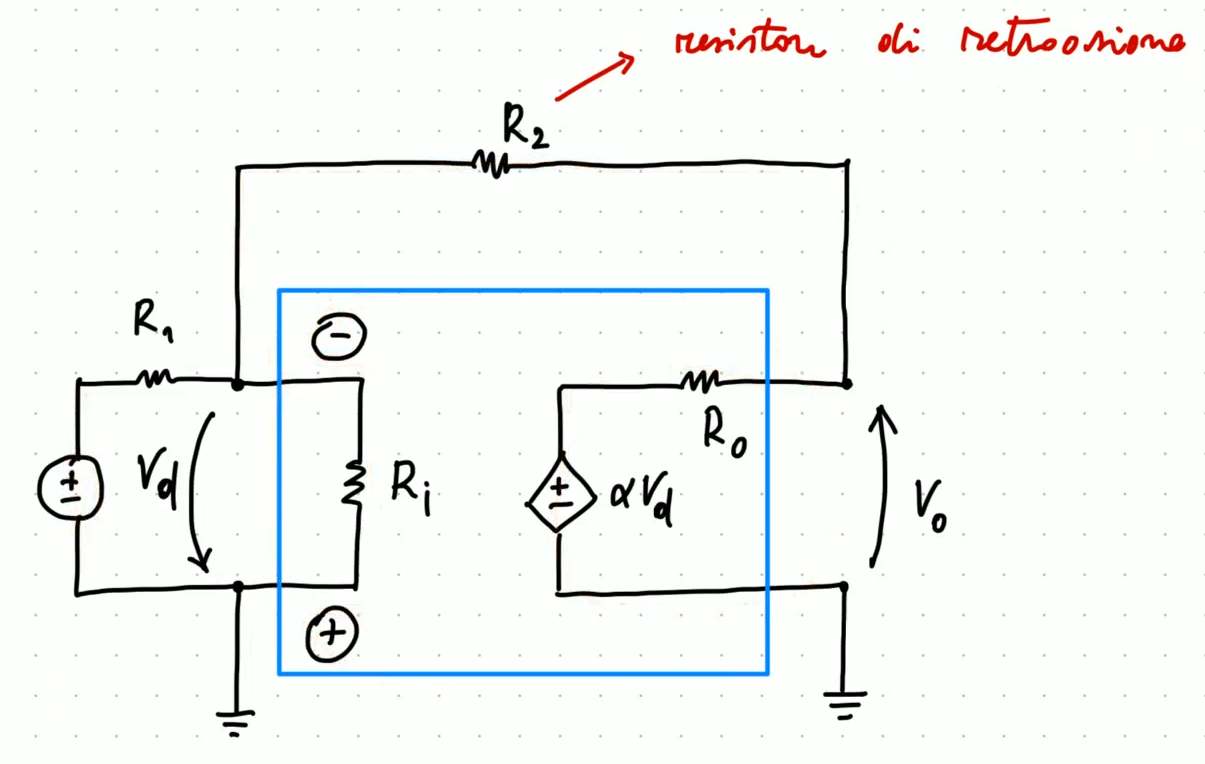 resistore di retroazione
R2
R1
−
+
−
Vd
Ri
+
−
αVd
R0
V0
+